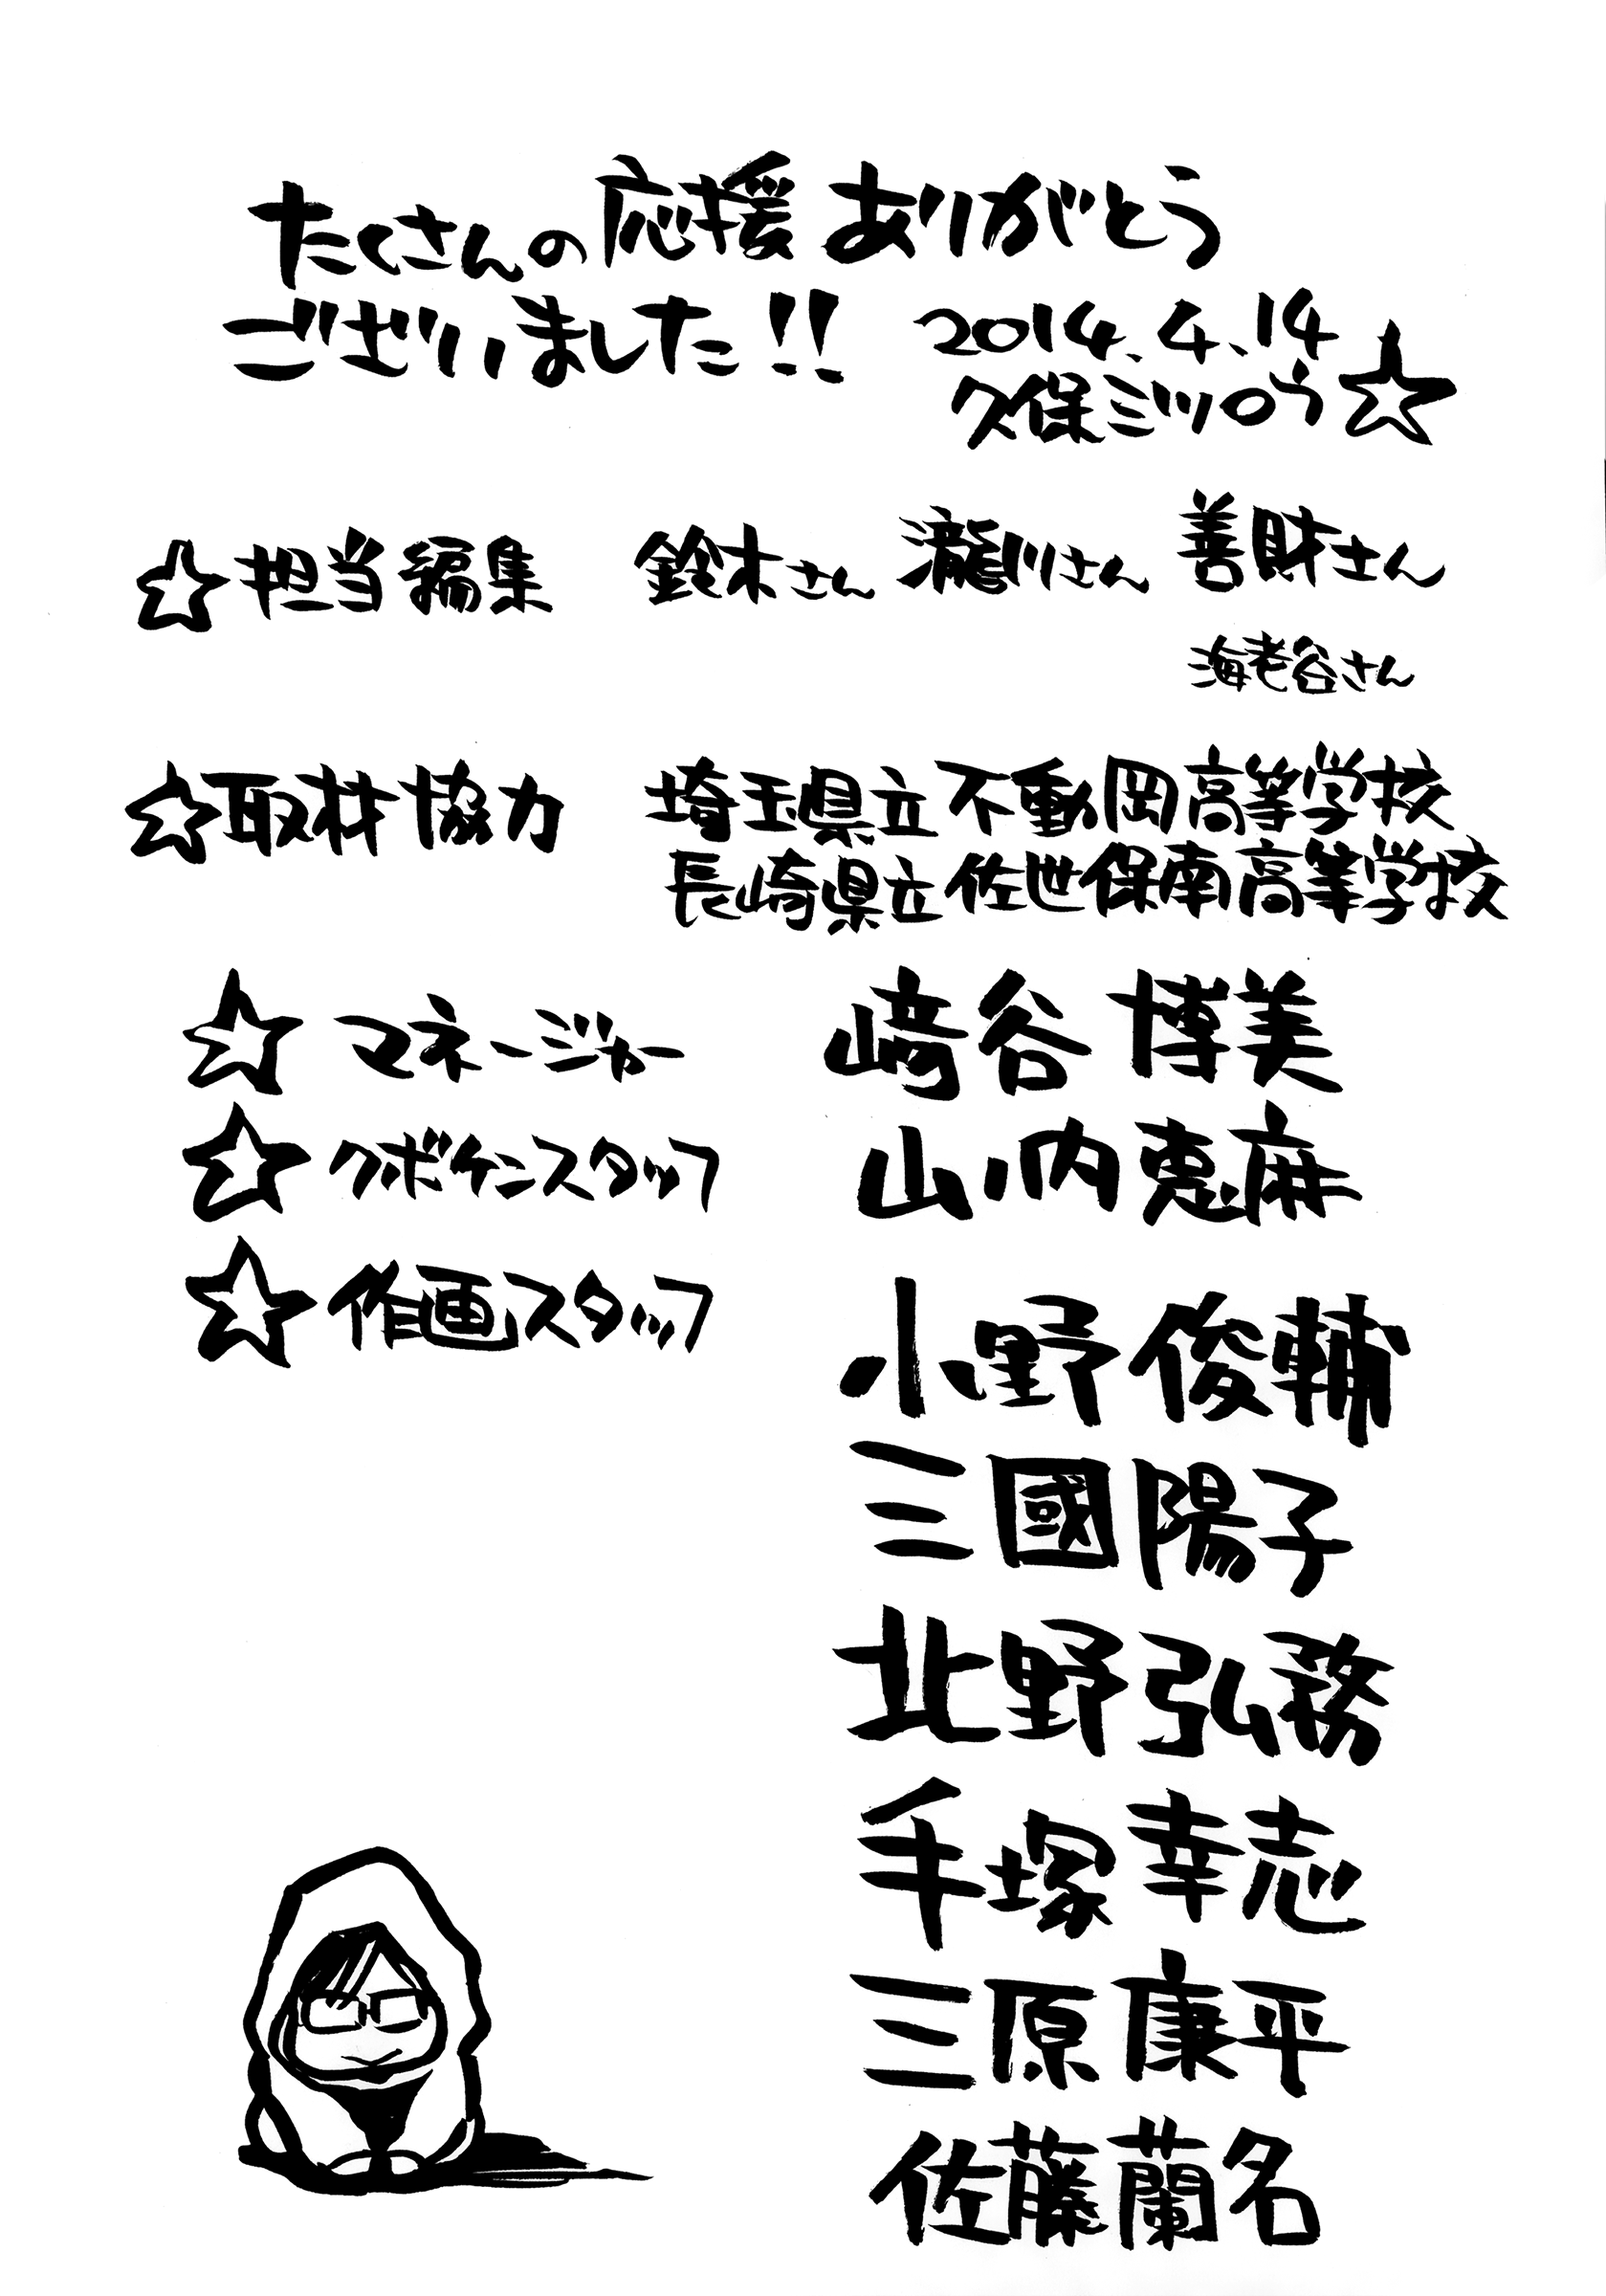 たくさんの応援ありがとう
ございました!!
2014.4.14
久保ミツロウ☆
☆担当編集 鈴木さん 瀧川さん 善財さん
海老谷さん
☆取材協力 埼玉県立不動岡高等学校
長崎県立佐世保南高等学校
☆マネージャー 﨑谷博美
☆クボケンスタッフ 山川内恵麻
☆作画スタッフ 小野俊輔
三國陽子
北野弘務
手塚幸志
三原康平
佐藤蘭名